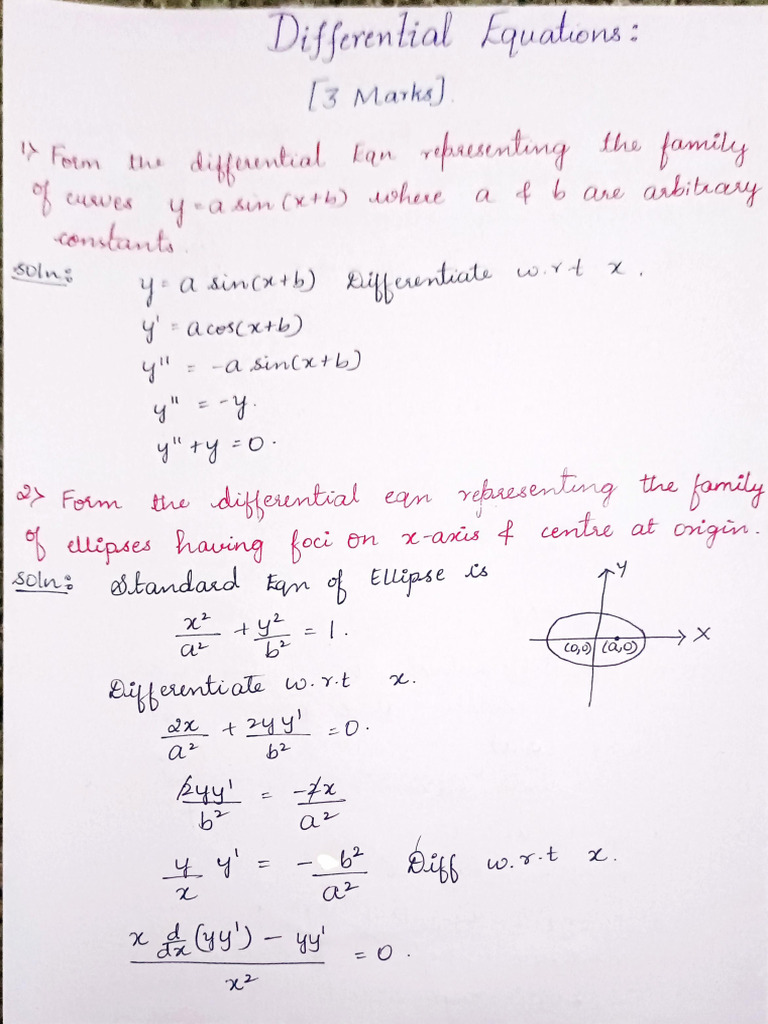 Differential Equations:
[3 Marks].
1> Form the differential Eqn representing the family
of curves y = a sin (x+b) where a & b are arbitrary
constants.
Soln:
y = a sin(x+b) Differentiate w.r.t x.
y' = a cos(x+b)
y'' = -a sin(x+b)
y'' = -y.
y'' + y = 0.
2> Form the differential eqn representing the family
of ellipses having foci on x-axis & centre at origin.
Soln: Standard Eqn of Ellipse is
x²/a² + y²/b² = 1.
Y
X
(0,0) (a,0)
Differentiate w.r.t x.
2x/a² + 2yy'/b² = 0.
2yy'/b² = -2x/a²
y/x y' = - b²/a² Diff w.r.t x.
x d/dx (yy') - yy' / x² = 0.